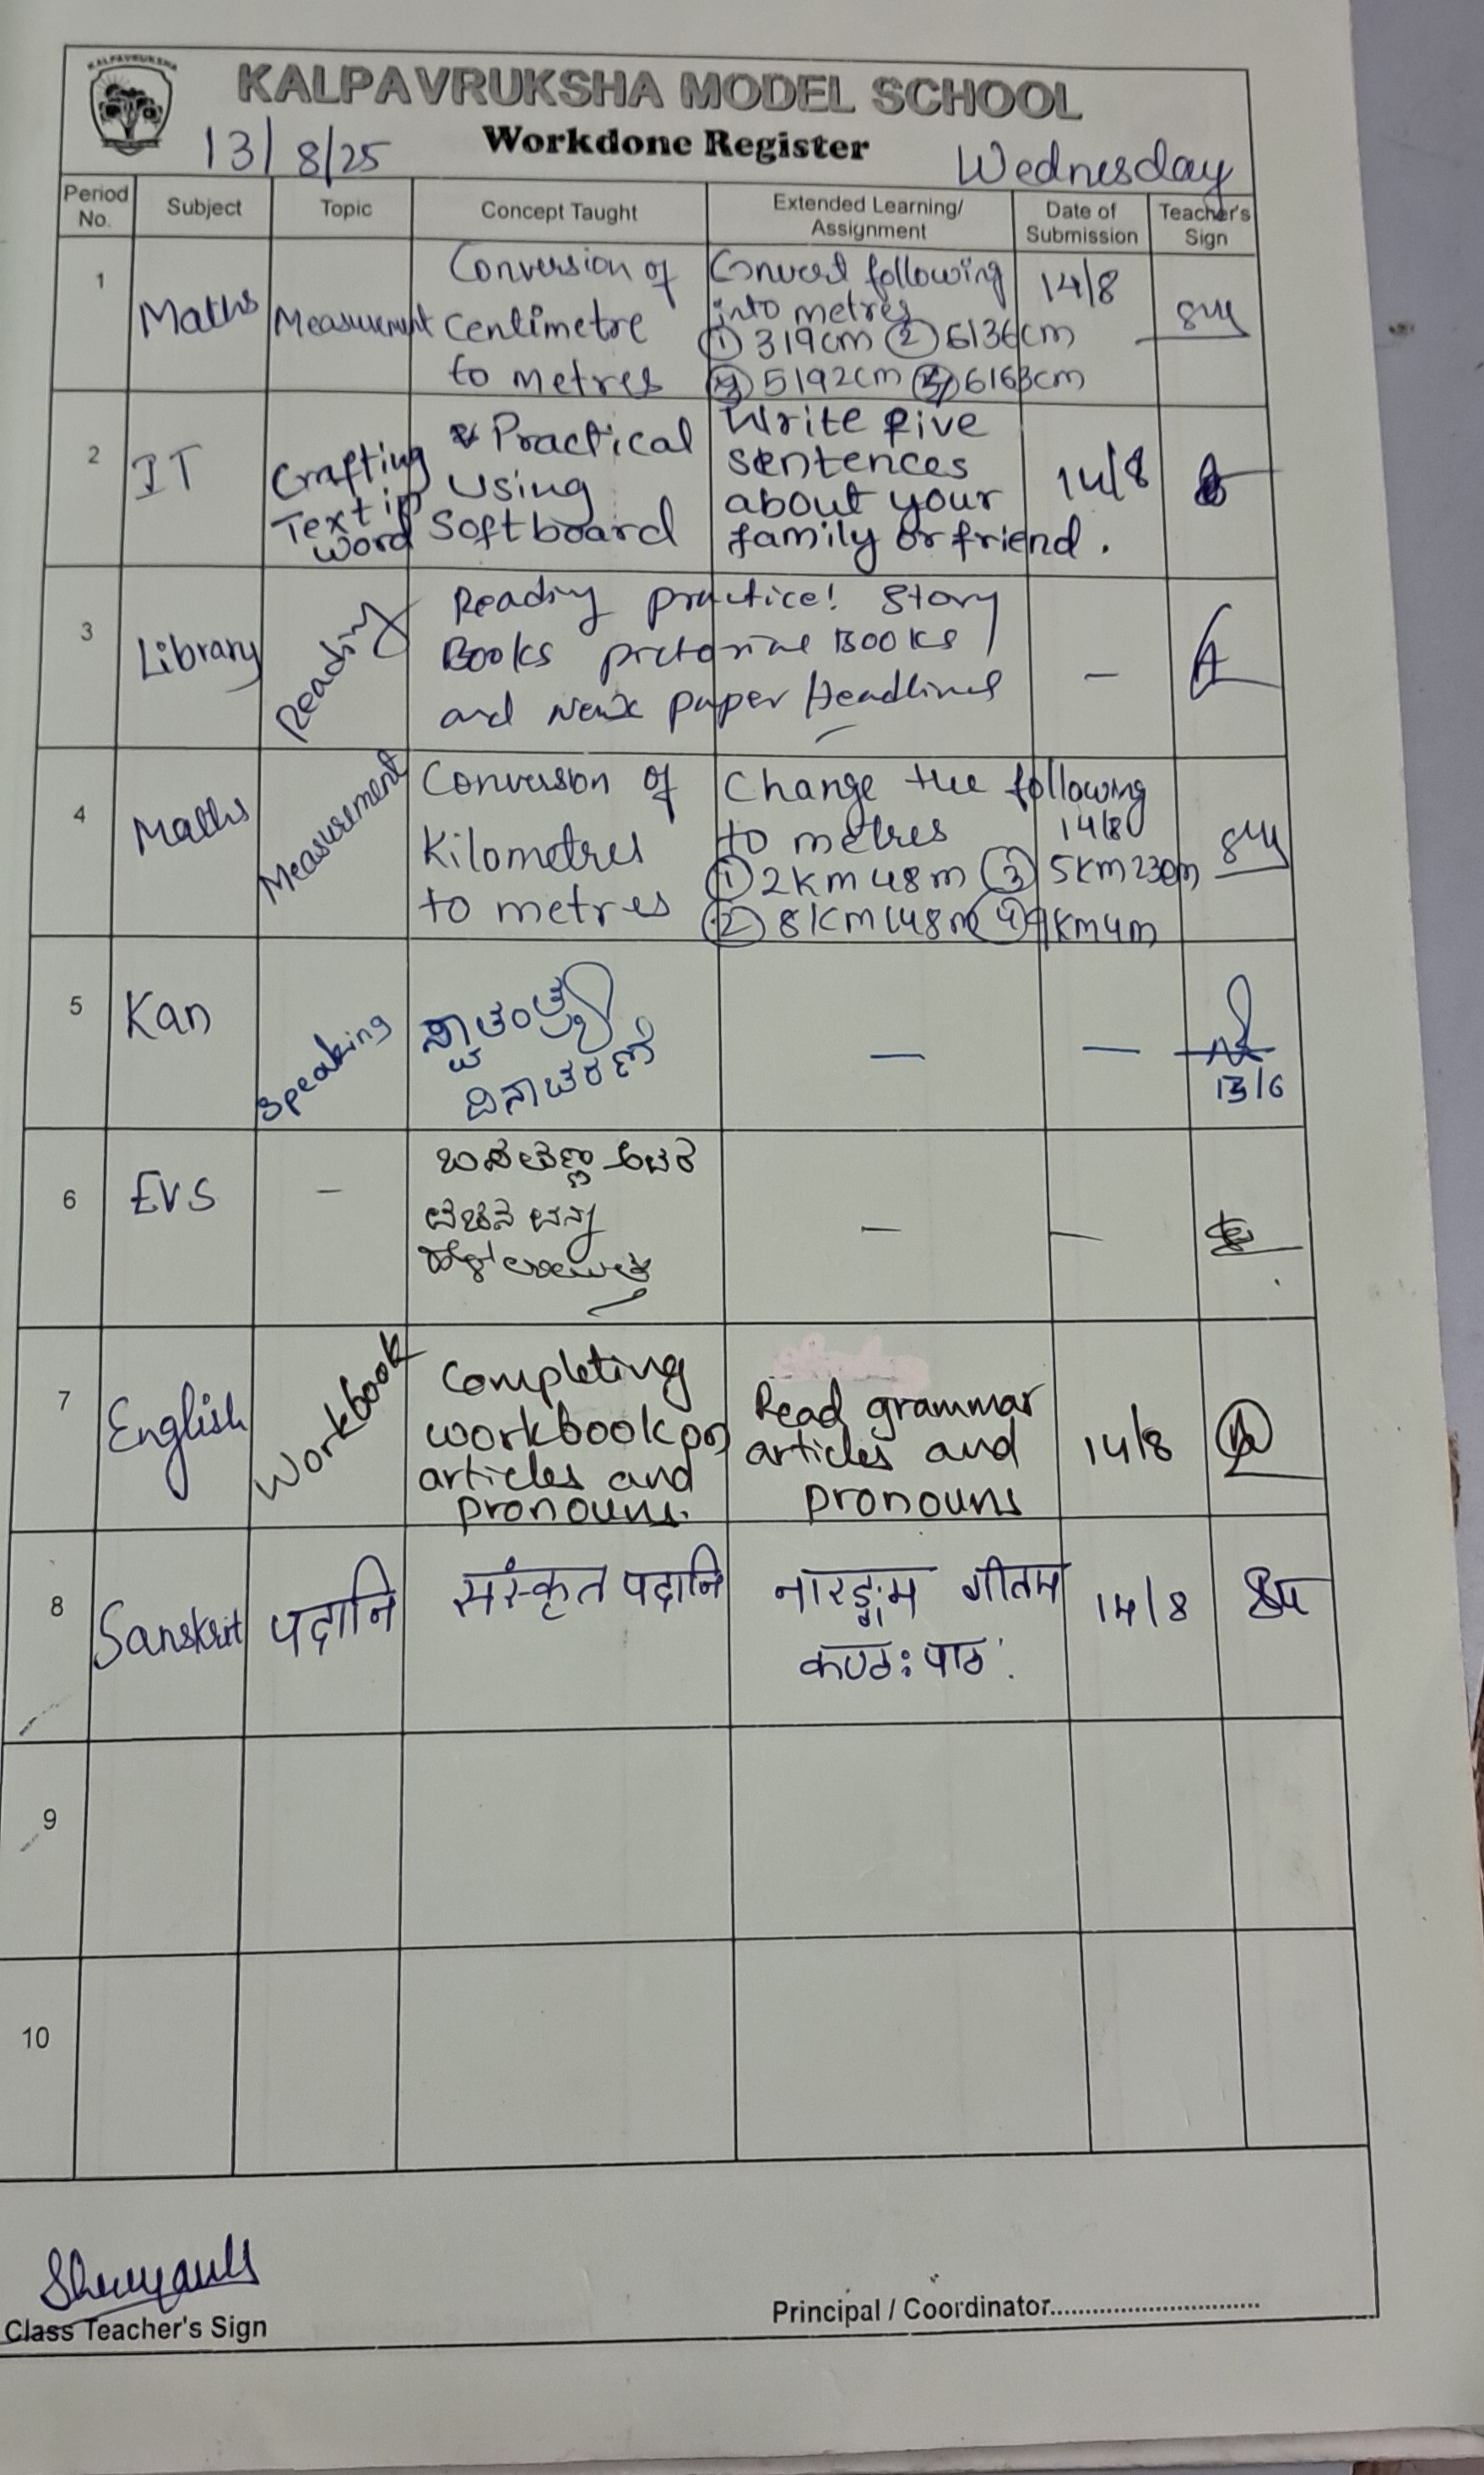 KALPAVRUKSHA
KALPAVRUKSHA MODEL SCHOOL
Workdone Register
13/8/25
Wednesday
Period No. Subject Topic Concept Taught Extended Learning/ Assignment Date of Submission Teacher's Sign
1 Maths Measurement
Conversion of
Centimetre
to metres
Convert following
into metres
① 319cm ② 6136cm
5192cm 6163cm
14/8
2 IT
Crafting
Text in
word
Practical
using
Softboard
Write five
sentences
about your
family or friend.
14/8
3 Library Reading
Reading practice! Story
Books Books
and paper Headlines
–
4 Maths Measurement
Conversion of
Kilometres
to metres
Change the following
to metres
① 2km 48m ③ 5km 230m
② 8km 148m ④ 9km 4m
14/8
5 Kan Speaking
ಸ್ವಾತಂತ್ರ್ಯ
ದಿನಾಚರಣೆ
– –
13/6
6 EVS –
– –
7 English Workbook
Completing
workbook on
articles and
pronouns.
Read grammar
articles and
pronouns
14/8
8 Sanskrit पदानि
संस्कृत पदानि
नारङ्गम गीतम
कण्ठः पाठ:
14/8
9
10
Class Teacher's Sign
Principal / Coordinator..............................